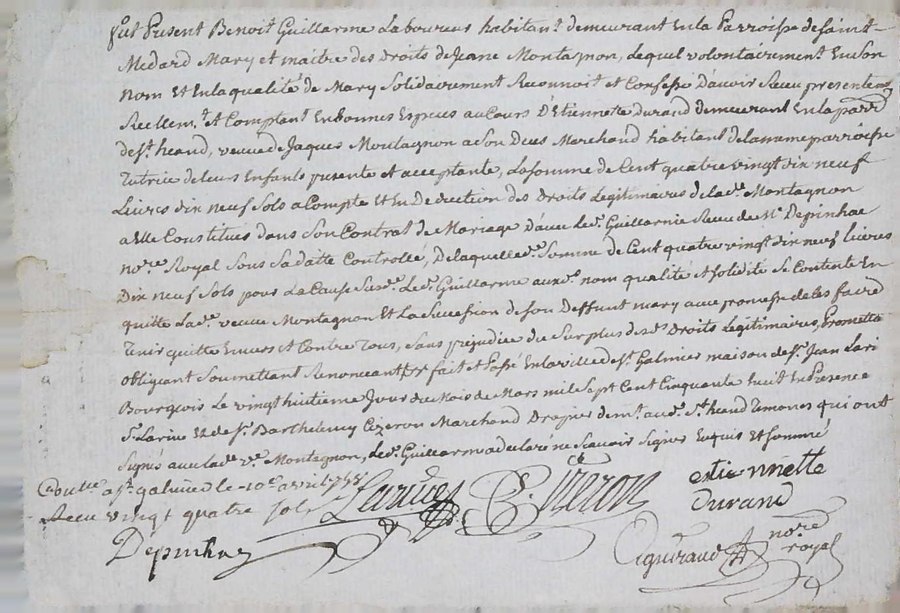 fut Present Benoit Guillarme Laboureur habitant demeurant En la Parroisse de saint
Medard Mary et maitre des droits de Jeane Montagnon, lequel volontairement En son
nom Et En la qualité de Mary Solidairement Reconnoit et Confesse D'avoir Receu presentemt
Reellemt. et Comptant En bonnes Especes au Cours D'Etiennette Durand demeurant En la parrse
de st. heand, veuve de Jaques Montagnon a son Deces Marchand habitant de la mme parroisse
Tutrice de leurs Enfants presente et acceptante, La somme de Cent quatre vingt dix neuf
Livres dix neuf Sols a Compte et En Deduction des Droits Legitimaires de lade. Montagnon
a Elle Constitués dans Son Contrat de Mariage D'avec led. Guillarme Receu de Me. Depinhac
nore. Royal Sous Sa datte Controllé, De laquelle de. Somme de Cent quatre vingt dix neuf livres
Dix neuf Sols pour La Cause Susde. Led. Guillarme auxds. nom qualité et solidité Se Contente En
quitte Lade. veuve Montagnon Et La Succession de son Deffunt mary avec promesse de les faire
Tenir quitte Envers et Contre Tous, Sans prejudice du Surplus desds Droits Legitimaires, Promettant
obligeant Soumettant Renonceant fait et Passé En la ville de st. Galmier maison de sr. Jean Lari
Bourgeois Le vingt huitieme Jour du Mois de Mars mil Sept Cent Cinquante huit En Presence
sr. Larive Et de sr. Barthelemy Cizeron Marchand Drapier demt. aud. st. heand Temoins qui ont
Signés avec lade. ve. Montagnon, led. Guillarme a declaré ne Scavoir Signer Enquis et Sommé
Controllé a st. galmier le 10e avril 1758
Receu vingt quatre sols
Larive
Cizeron
etiennette
Durand
Depinhac
nore
royal